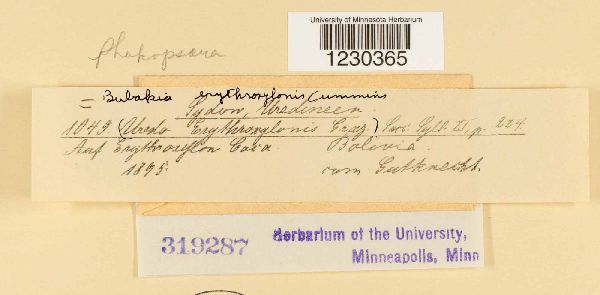 University of Minnesota Herbarium
1230365
Phakopsora
= Bubakia erythroxylonis Cummins
Sydow, Uredineen
1049. (Uredo Erythroxylonis Graz.) Sacc. Syll. XI p. 224
Auf Erythroxylon Coca. Bolivia.
1895.
319287
Herbarium of the University,
Minneapolis, Minn